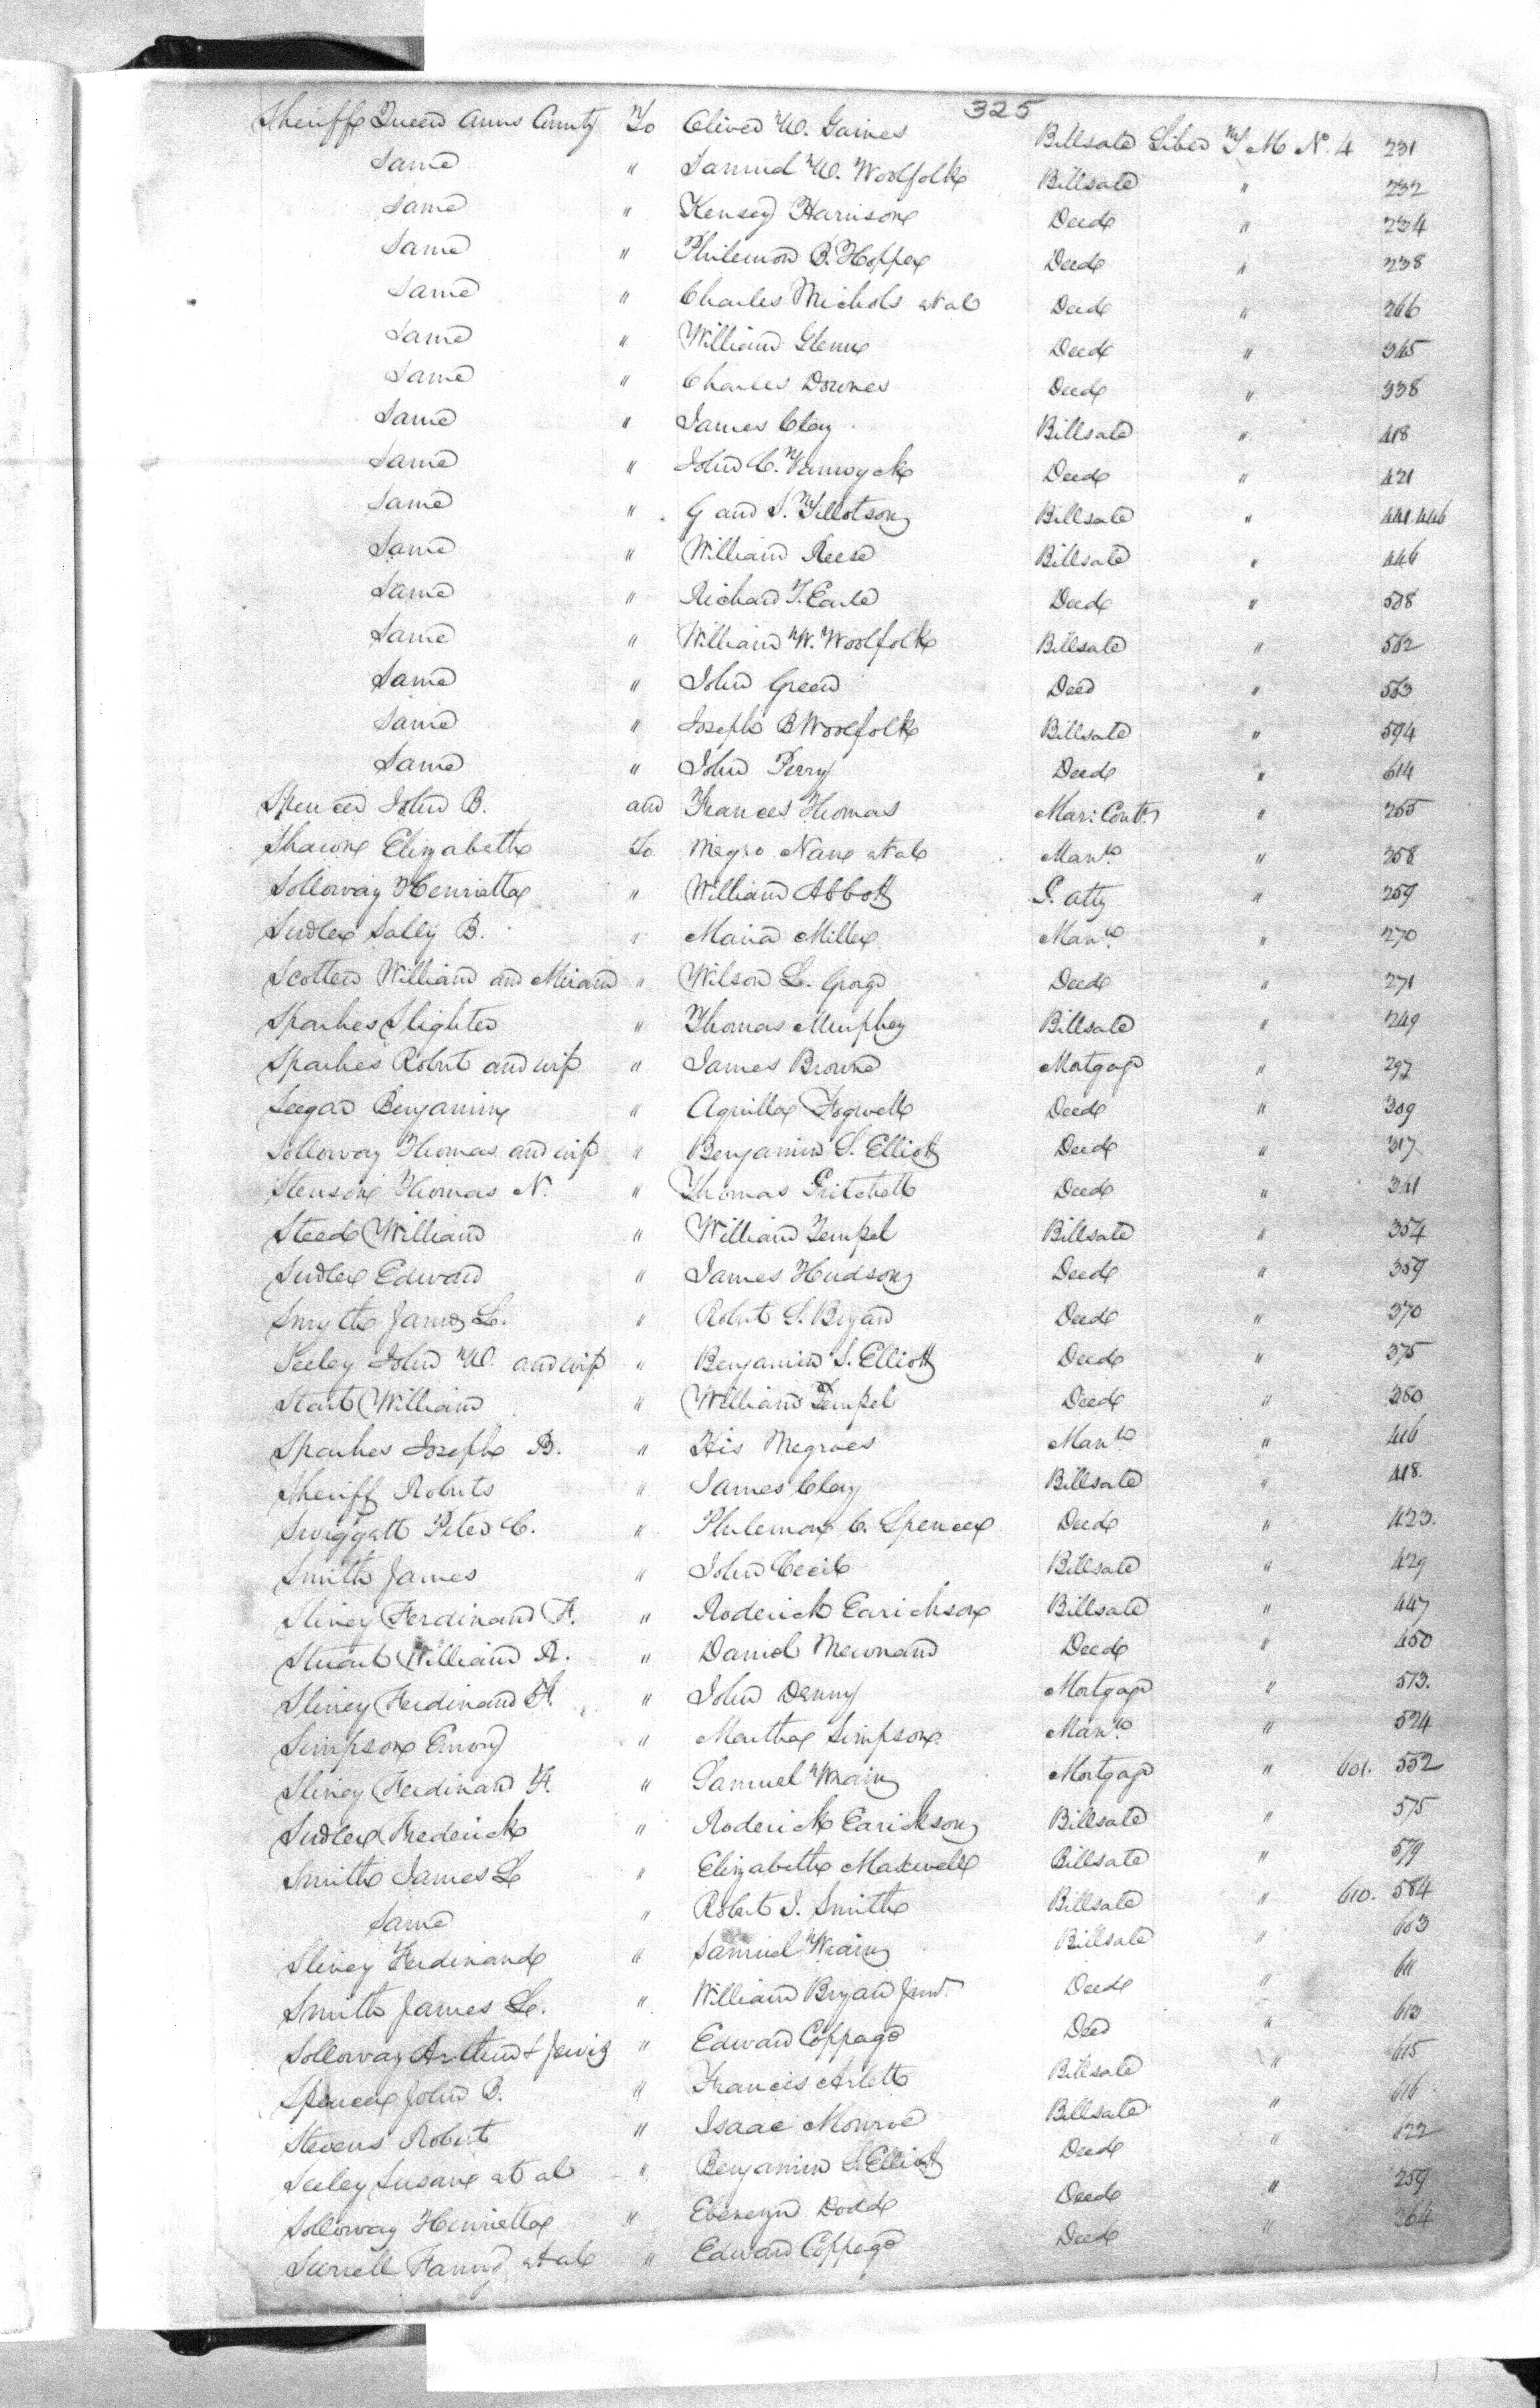 325
Sheriff Queen Anns County To Oliver W. Gaines Billsale Liber T M No. 4 231
Same " Samuel W. Woolfolk Billsale " 232
Same " Kensey Harrison Deed " 234
Same " Philemon B. Hopper Deed " 238
Same " Charles Nichols et al Deed " 266
Same " William Glenn Deed " 345
Same " Charles Downes Deed " 338
Same " James Clay Billsale " 418
Same " John C. Vanwyck Deed " 421
Same " G and S. Tillotson Billsale " 441.446
Same " William Reese Billsale " 446
Same " Richard T. Earle Deed " 508
Same " William W. Woolfolk Billsale " 562
Same " John Green Deed " 563
Same " Joseph B Woolfolk Billsale " 594
Same " John Perry Deed " 614
Spencer John B. and Frances Thomas Mar: Contt. " 255
Shawn Elizabeth To Negro Nan et al Manto. " 358
Solloway Henrietta " William Abbott P. atty " 259
Sudler Sally B. " Maria Miller Manto. " 270
Scotten William and Miriam " Wilson L. Gorge Deed " 271
Sparkes Slighter " Thomas Murphey Billsale " 249
Sparkes Robert and wife " James Browne Mortgage " 297
Seegar Benjamin " Aquilla Fogwell Deed " 309
Solloway Thomas and wife " Benjamin S. Elliott Deed " 317
Stenson Thomas N. " Thomas Pritchett Deed " 341
Steed William " William Tempel Billsale " 354
Sudler Edward " James Hudson Deed " 359
Smyth James L. " Robert S. Bryan Deed " 370
Seeley John W. and wife " Benjamin S. Elliott Deed " 375
Start William " William Tempel Deed " 380
Sparkes Joseph B. " His Negroes Manto " 416
Sheriff Roberts " James Clay Billsale " 418.
Swiggett Peter C. " Philemon C. Spencer Deed " 423.
Smith James " John Cecil Billsale " 429
Sliney Ferdinand F. " Roderick Earickson Billsale " 447
Stuart William R. " Daniel Newnam Deed " 450
Sliney Ferdinand F. " John Denny Mortgage " 513.
Simpson Emory " Martha Simpson Manto. " 524
Sliney Ferdinand F. " Samuel Wrain Mortgage " 601. 552
Sudler Frederick " Roderick Earickson Billsale " 575
Smith James L " Elizabeth Maxwell Billsale " 579
Same " Robert S. Smith Billsale " 610. 584
Sliney Ferdinand " Samuel Wrain Billsale " 603
Smith James L. " William Bryan Junr. Deed " 611
Solloway Arthur & " Edward Coppage Deed " 613
Spencer John B. " Francis Arlett Billsale " 615
Stevens Robert " Isaac Monroe Billsale " 616
Seeley Susan et al " Benjamin S. Elliott Deed " 622
Solloway Henrietta " Ebenezer Dodd Deed " 259
Surrell Fanny et al " Edward Coppage Deed " 264